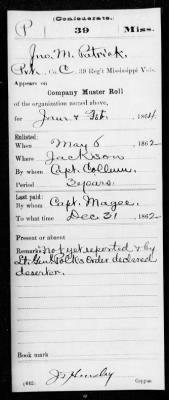 (Confederate.)
P 39 Miss.
Jno. M. Patrick
Pvt., Co. C, 39 Reg't Mississippi Vols.
Appears on
Company Muster Roll
of the organization named above,
for Jan & Feb, 1864.
Enlisted:
When May 6, 1862
Where Jackson
By whom Capt. Collum
Period 3 years.
Last paid:
By whom Capt. Magee
To what time Dec. 31, 1862
Present or absent
Remarks: Not yet reported & by
Lt. Genl. Polk's order declared
deserter.
Book mark
(642) Copyist.